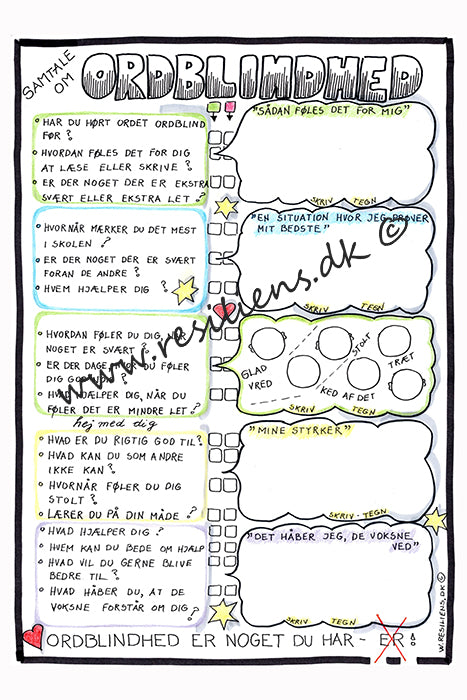 SAMTALE
OM
ORDBLINDHED
HAR DU HØRT ORDET ORDBLIND
FØR?
HVORDAN FØLES DET FOR DIG
AT LÆSE ELLER SKRIVE?
ER DER NOGET DER ER EKSTRA
SVÆRT ELLER EKSTRA LET?
"SÅDAN FØLES DET FOR MIG"
SKRIV TEGN
HVORNÅR MÆRKER DU DET MEST
I SKOLEN?
ER DER NOGET DER ER SVÆRT
FORAN DE ANDRE?
HVEM HJÆLPER DIG?
"EN SITUATION HVOR JEG PRØVER
MIT BEDSTE"
SKRIV TEGN
HVORDAN FØLER DU DIG, NÅR
NOGET ER SVÆRT?
ER DER DAGE, HVOR DU FØLER
DIG GOD NOK?
HVAD HJÆLPER DIG, NÅR DU
FØLER DET ER MINDRE LET?
GLAD
VRED
STOLT
KED AF DET
TRÆT
SKRIV TEGN
hej med dig
HVAD ER DU RIGTIG GOD TIL?
HVAD KAN DU SOM ANDRE
IKKE KAN?
HVORNÅR FØLER DU DIG
STOLT?
LÆRER DU PÅ DIN MÅDE?
"MINE STYRKER"
SKRIV · TEGN
HVAD HJÆLPER DIG?
HVEM KAN DU BEDE OM HJÆLP
HVAD VIL DU GERNE BLIVE
BEDRE TIL?
HVAD HÅBER DU, AT DE
VOKSNE FORSTÅR OM DIG?
"DET HÅBER JEG, DE VOKSNE
VED"
SKRIV TEGN
ORDBLINDHED ER NOGET DU HAR - ER!
W.RESILIENS.DK ©
www.resiliens.dk ©